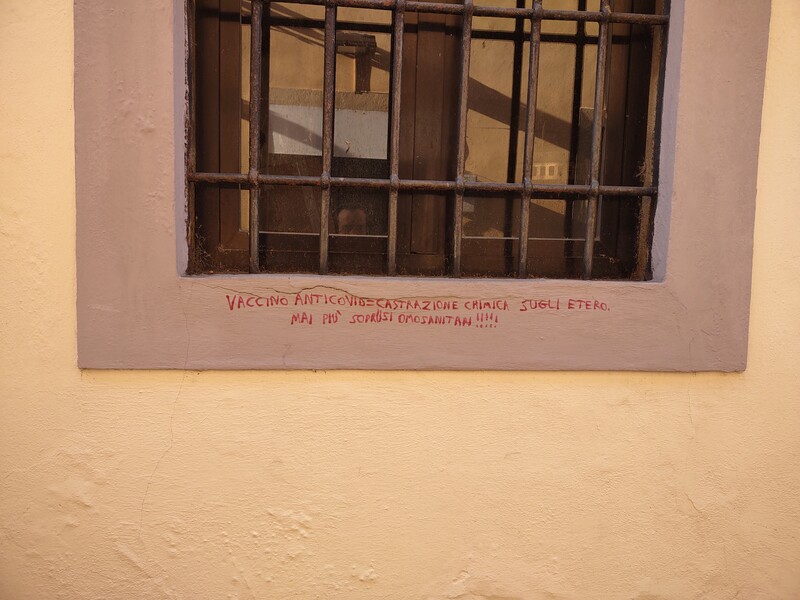 VACCINO ANTICOVID=CASTRAZIONE CHIMICA SUGLI ETERO.
MAI PIU' SOPRUSI OMOSANITARI !!!!!